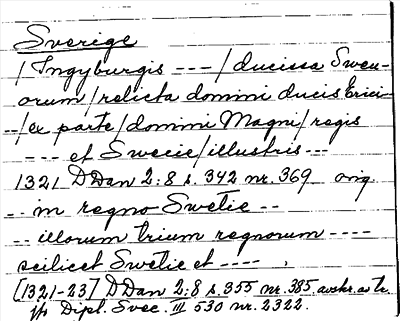 Sverige
/ Ingyburgis --- / ducissa Sweu-
orum / relicta domini ducis Erici
--/ex parte / domini Magni / regis
--- et Swecie / illustris ---
1321 DDan 2:8 s. 342 nr. 369 orig
-- in regno Swetie --
-- illorum trium regnorum ----
scilicet Swetie et ----.
[1321-23] DDan 2:8 s. 355 nr. 385 avskr. av tr.
jfr Dipl. Svec. III 530 nr. 2322.